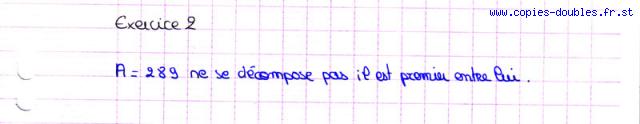 www.copies-doubles.fr.st
Exercice 2
A = 289 ne se décompose pas il est premier entre lui.